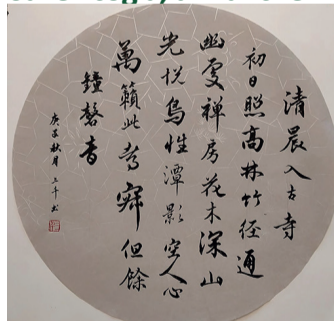 清晨入古寺
初日照高林竹径通
幽處禅房花木深山
光悦鳥性潭影空人心
萬籟此寂但餘
鐘磬音
庚子秋月